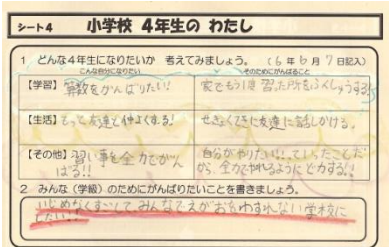 シート4 小学校 4年生の わたし
1 どんな4年生になりたいか 考えてみましょう。 (6年6月7日記入)
こんな自分になりたい そのためにがんばること
【学習】 算数をがんばりたい! 家でもう1度習った所をふくしゅうする。
【生活】 もっと友達と仲よくする! せっきょくてきに友達に話しかける。
【その他】 習い事を全力でがん
ばる!! 自分がやりたい!!、ていったことだ
から、全力でやれるようにど力する!!
2 みんな(学級)のためにがんばりたいことを書きましょう。
いじめなくすごして、みんなでえがおをわすれない学校に
したい!!